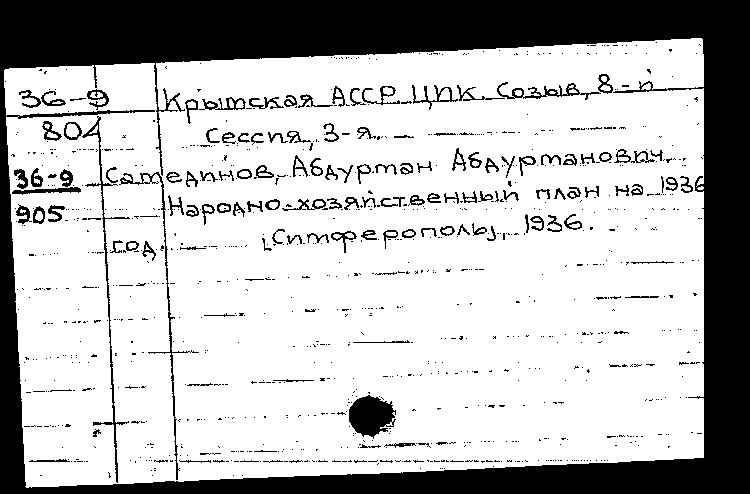 36-9 Крымская АССР. ЦИК. Созыв, 8-й
804 Сессия, 3-я. —
36-9 Самединов, Абдурман Абдурманович.
905 Народно-хозяйственный план на 1936
год. [Симферополь], 1936.